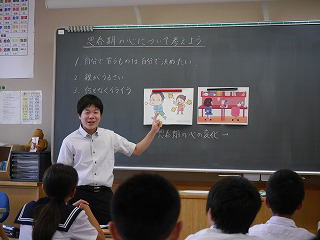 思春期の心について考えよう
1 自分で買うものは自分で決めたい
2 親がうるさい
3 何となくイライラ
思春期の心の変化→